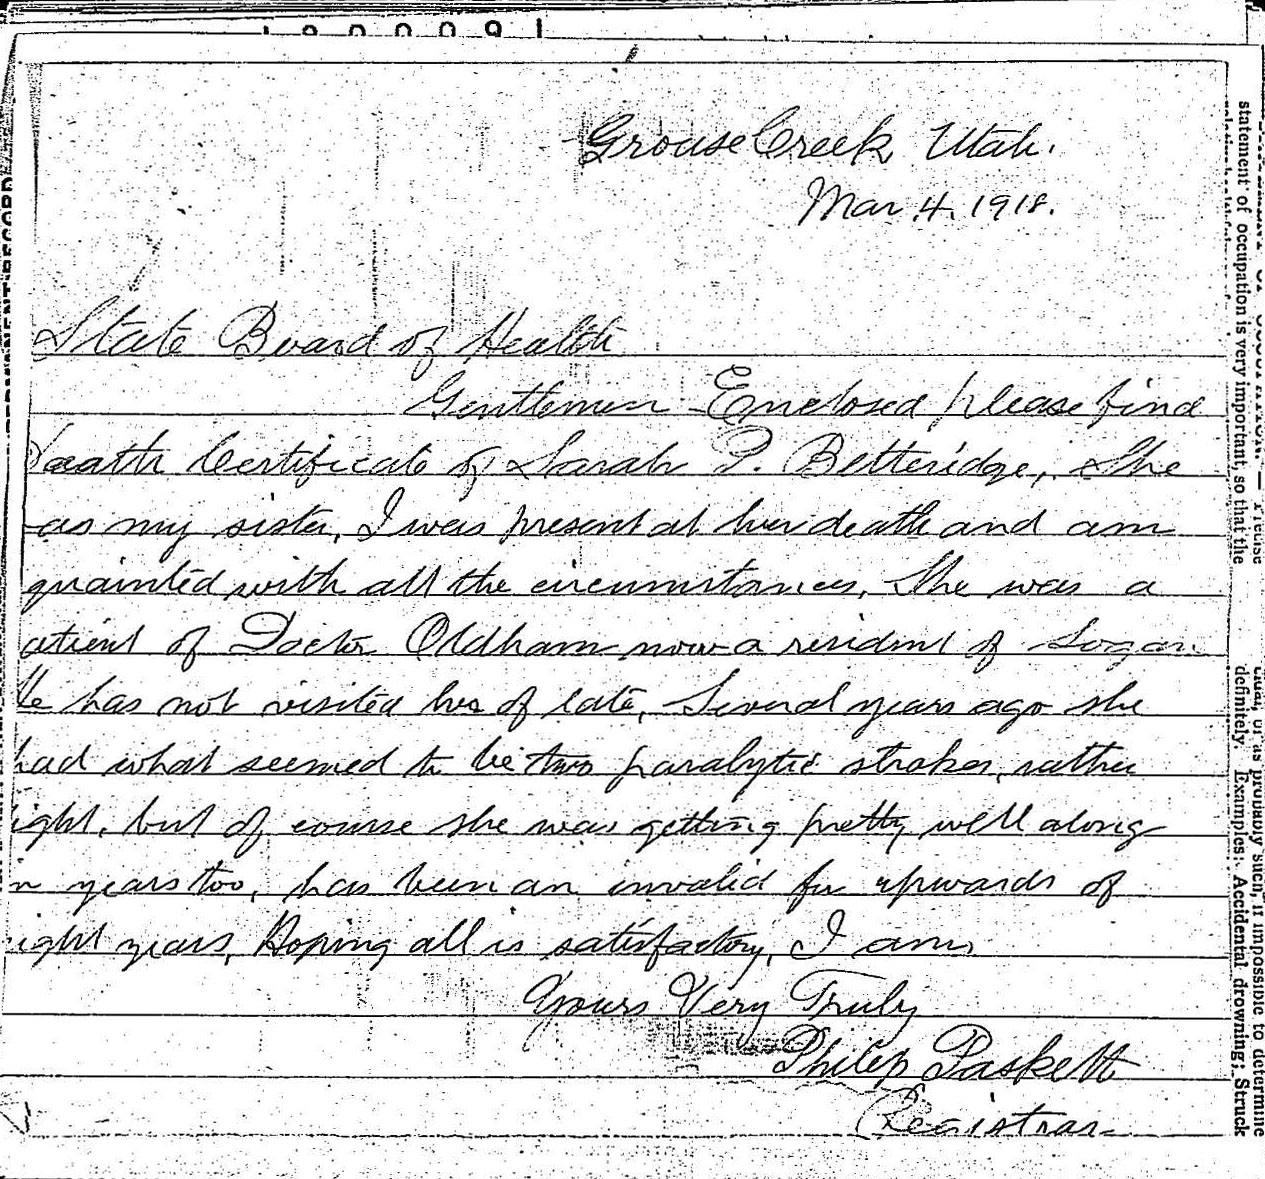 Grouse Creek, Utah.
Mar. 4. 1918.
State Board of Health
Gentlemen Enclosed please find
Death Certificate of Sarah P. Betteridge, She
as my sister, I was present at her death and am
quainted with all the circumstances, She was a
atient of Doctor Oldham now a resident of Logan
He has not visited her of late, Several years ago she
had what seemed to be two paralytic strokes, rather
ight, but of course she was getting pretty well along
n years too, has been an invalid for upwards of
ight years, Hoping all is satisfactory, I am,
Yours Very Truly
Philip Paskett
Registrar
statement of occupation is very important, so that the
definitely. Examples: Accidental drowning; Struck
or as probably such, if impossible to determine